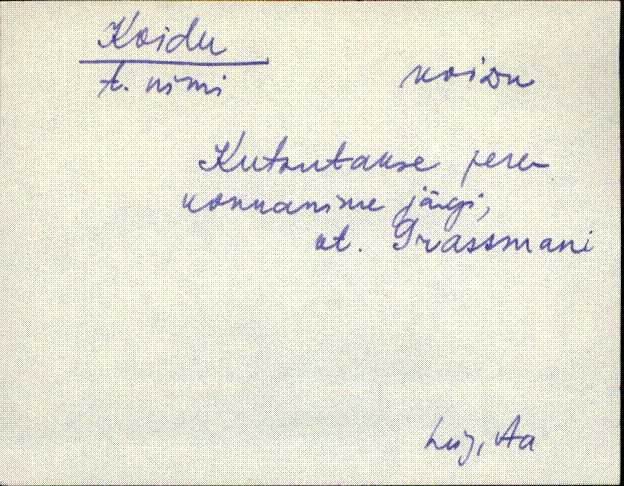 Koidu
t. nimi koiᴅu
Kutsutakse pere-
konnanime järgi,
vt. Grassmani
Lüg, Aa